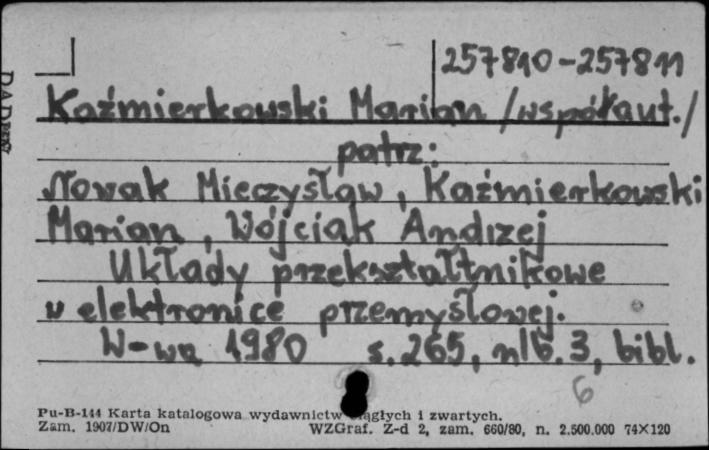 257810-257811
Kaźmierkowski Marian /współaut./
patrz:
Nowak Mieczysław, Kaźmierkowski
Marian, Wójciak Andrzej
Układy przekształtnikowe
w elektronice przemysłowej.
W-wa 1980 s. 265, nlb. 3, bibl.
6
Pu-B-144 Karta katalogowa wydawnictw ciągłych i zwartych.
Zam. 1907/DW/On WZGraf. Z-d 2, zam. 660/80, n. 2.500.000 74X120